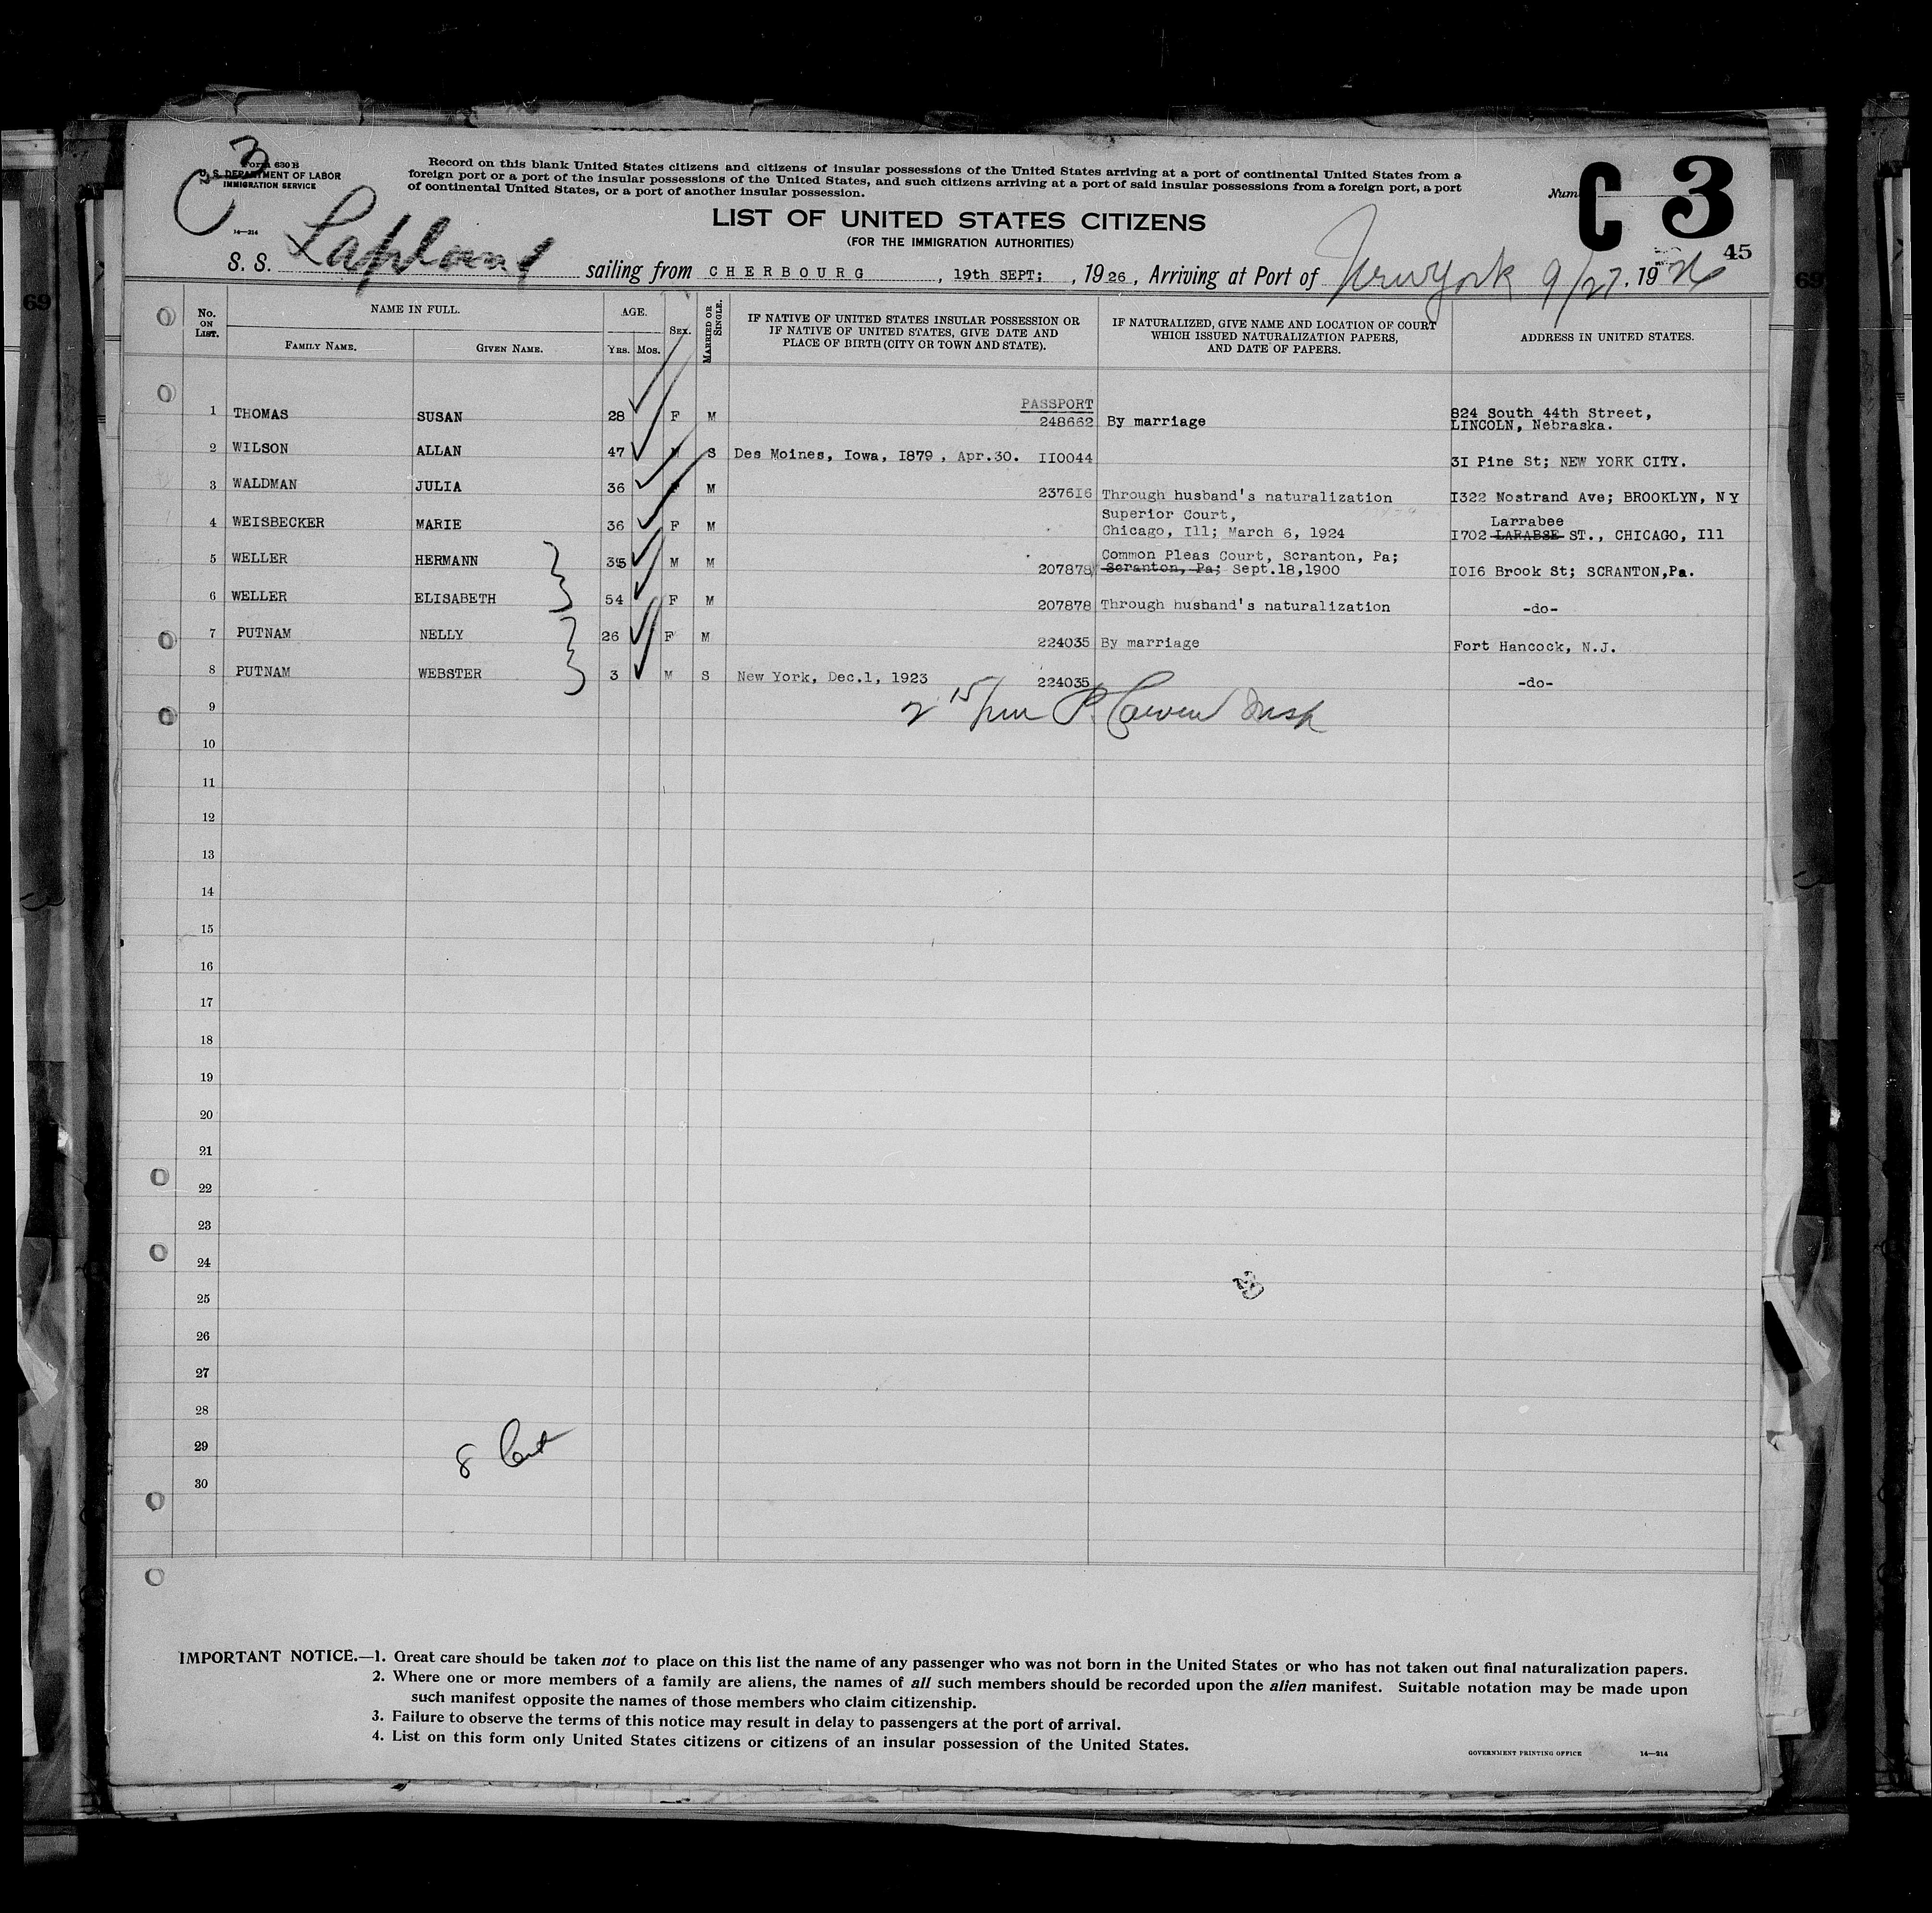 Form 630 B
U. S. DEPARTMENT OF LABOR
IMMIGRATION SERVICE
14—214
Record on this blank United States citizens and citizens of insular possessions of the United States arriving at a port of continental United States from a
foreign port or a port of the insular possessions of the United States, and such citizens arriving at a port of said insular possessions from a foreign port, a port
of continental United States, or a port of another insular possession.
C 3
45
LIST OF UNITED STATES CITIZENS
(FOR THE IMMIGRATION AUTHORITIES)
S. S. Lapland sailing from CHERBOURG, 19th SEPT; , 1926, Arriving at Port of New York 9/27, 1926
No. ON LIST.
NAME IN FULL.
FAMILY NAME. GIVEN NAME.
AGE.
YRS. MOS.
SEX.
MARRIED OR SINGLE.
IF NATIVE OF UNITED STATES INSULAR POSSESSION OR
IF NATIVE OF UNITED STATES, GIVE DATE AND
PLACE OF BIRTH (CITY OR TOWN AND STATE).
IF NATURALIZED, GIVE NAME AND LOCATION OF COURT
WHICH ISSUED NATURALIZATION PAPERS,
AND DATE OF PAPERS.
ADDRESS IN UNITED STATES.
PASSPORT
1 THOMAS SUSAN 28 F M 248662 By marriage 824 South 44th Street,
LINCOLN, Nebraska.
2 WILSON ALLAN 47 S Des Moines, Iowa, I879, Apr.30. II0044 3I Pine St; NEW YORK CITY.
3 WALDMAN JULIA 36 F M 2376I6 Through husband's naturalization I322 Nostrand Ave; BROOKLYN, NY
4 WEISBECKER MARIE 36 F M Superior Court,
Chicago, Ill; March 6, 1924
Larrabee
I702 LARABSE ST., CHICAGO, Ill
5 WELLER HERMANN M M 207878 Common Pleas Court, Scranton, Pa;
Scranton, Pa; Sept.18,1900 I0I6 Brook St; SCRANTON,Pa.
6 WELLER ELISABETH 54 F M 207878 Through husband's naturalization -do-
7 PUTNAM NELLY 26 F M 224035 By marriage Fort Hancock, N.J.
8 PUTNAM WEBSTER 3 M S New York, Dec.1, 1923 224035 -do-
9
10
11
12
13
14
15
16
17
18
19
20
21
22
23
24
25
26
27
28
29
30
IMPORTANT NOTICE.—1. Great care should be taken not to place on this list the name of any passenger who was not born in the United States or who has not taken out final naturalization papers.
2. Where one or more members of a family are aliens, the names of all such members should be recorded upon the alien manifest. Suitable notation may be made upon
such manifest opposite the names of those members who claim citizenship.
3. Failure to observe the terms of this notice may result in delay to passengers at the port of arrival.
4. List on this form only United States citizens or citizens of an insular possession of the United States.
GOVERNMENT PRINTING OFFICE 14—214